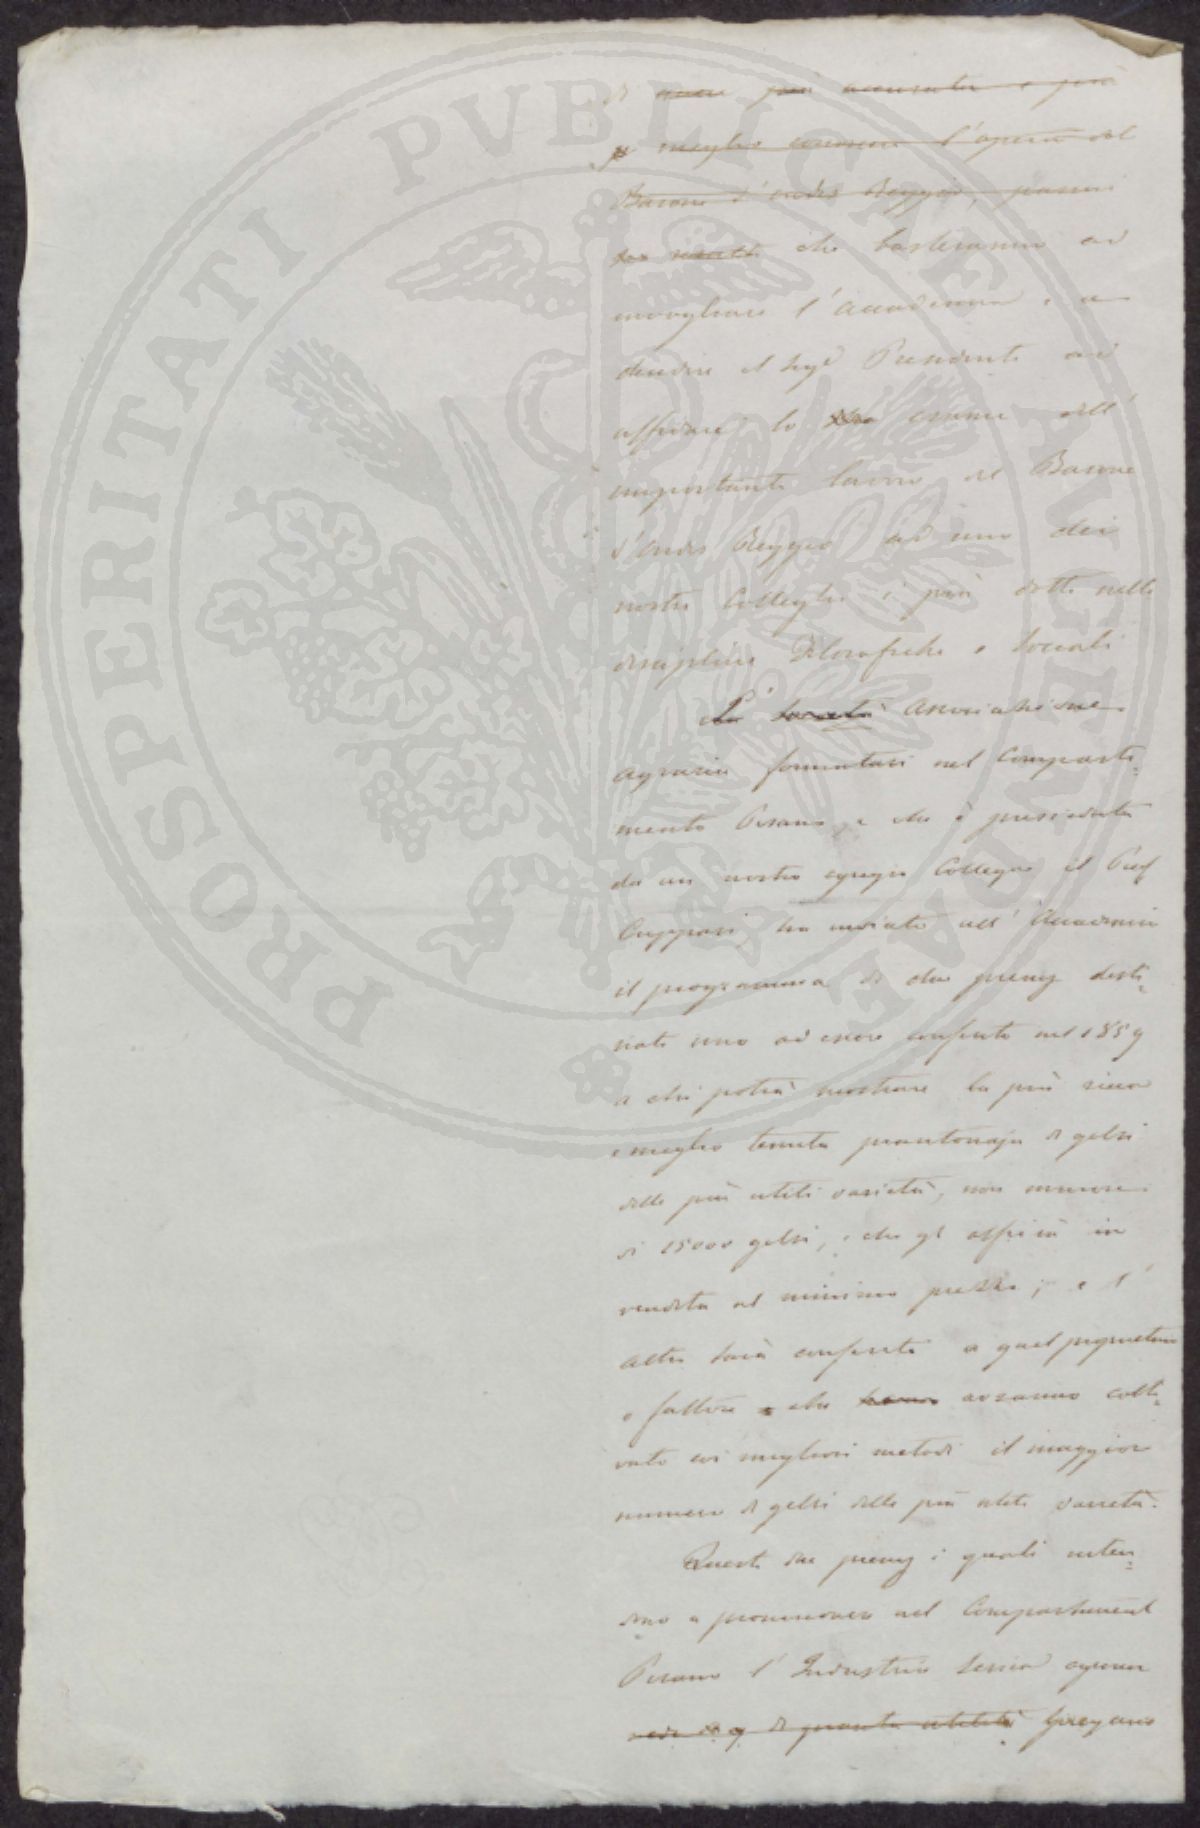 PROSPERITATI PVBLICAE AVGENDAE
di avere più accurata e più
meglio conoscere l'opera del
Barone d'Ondes Reggio, parmi
che basteranno ad
invogliare l'Accademia e a
decidere il Sigr Presidente ad
affidare lo esame dell'
importante lavoro del Barone
d'Ondes Reggio ad uno dei
nostri Colleghi i più dotti nelle
discipline Filosofiche e Sociali
La Società Associazione
agraria formatasi nel Comparti=
mento Pisano, e che è presieduta
da un nostro egregio Collega il Prof
Cuppari, ha inviato all'Accademia
il programma di due premj desti=
nati uno ad essere conferito nel 1859
a chi potrà mostrare la più ricca
e meglio tenuta piantonaja di gelsi
delle più utili varietà, non minore
di 15000 gelsi, e che gli offrirà in
vendita al minimo prezzo; e l'
altro sarà conferito a quel proprietario
o fattore che avranno colti=
vato coi migliori metodi il maggior
numero di gelsi delle più utili varietà.
Questi due premj i quali inten=
dono a promuovere nel Compartimento
Pisano l'Industria Serica
di quanta utilità